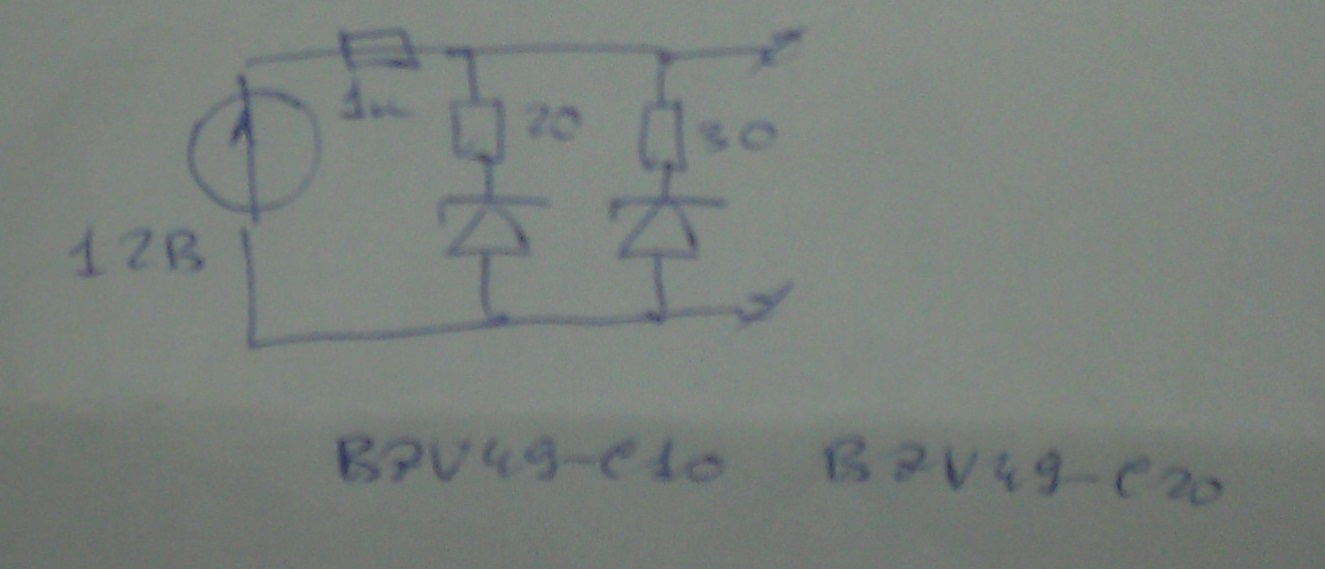 1к
20
30
12В
BZV49-C10 BZV49-C20